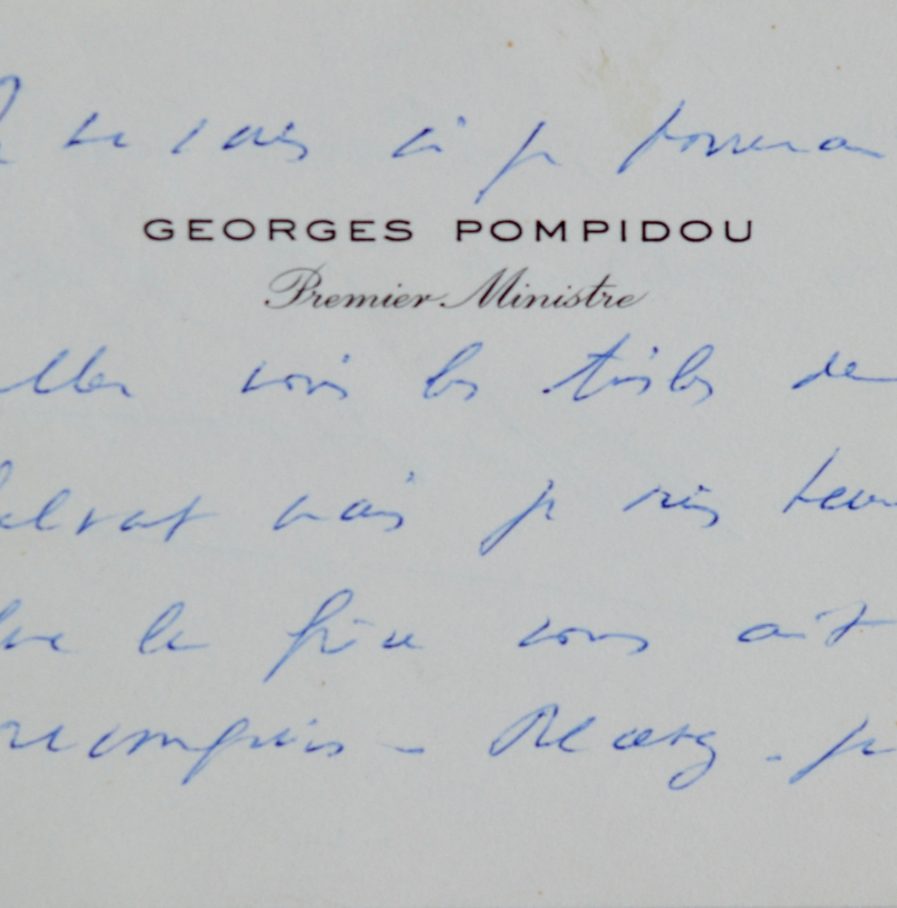 Je ne sais si je pourrai
GEORGES POMPIDOU
Premier Ministre
aller voir les toiles de
mais je suis
la pièce vous ait
- je